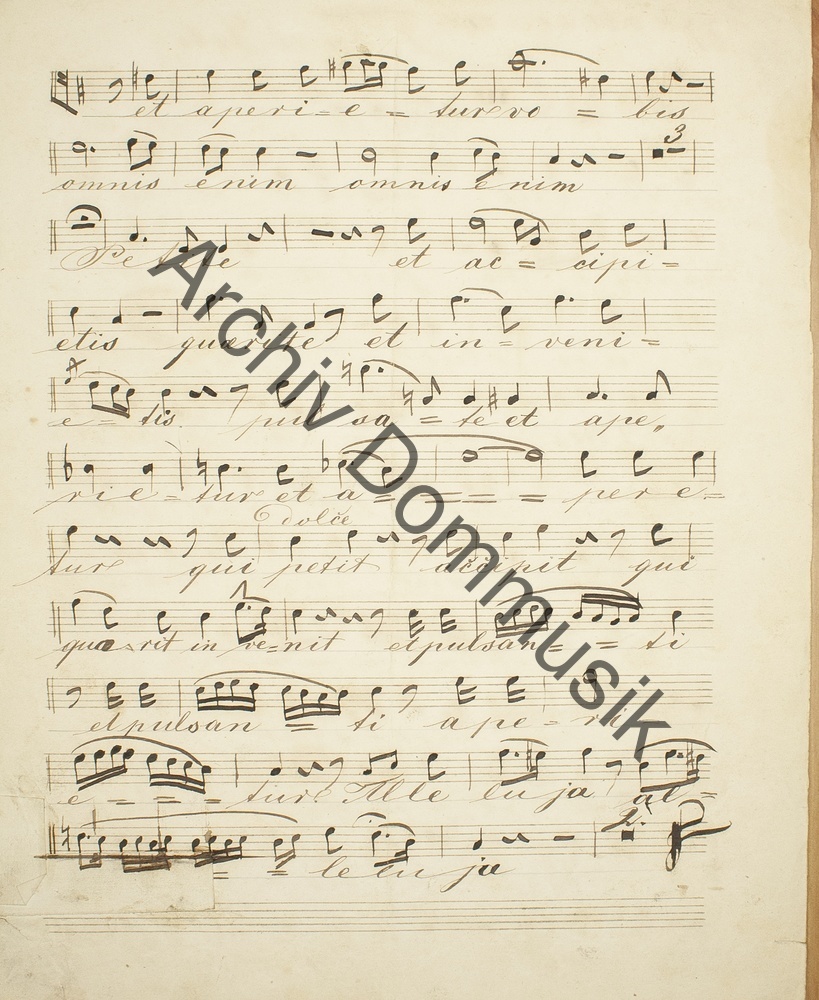 et aperi-e = tur vo = bis
3
omnis enim omnis enim
Petite et ac = cipi =
etis quærite et in = veni =
e = tis pul sa = te et ape,
rie = tur et a = = = = per e =
dolce
tur qui petit accipit qui
quærit in ve=nit et pulsan = = ti
et pulsan = ti ape = ri
e = = = tur Alle lu ja al =
2.
= = le lu ja
Archiv Dommusik